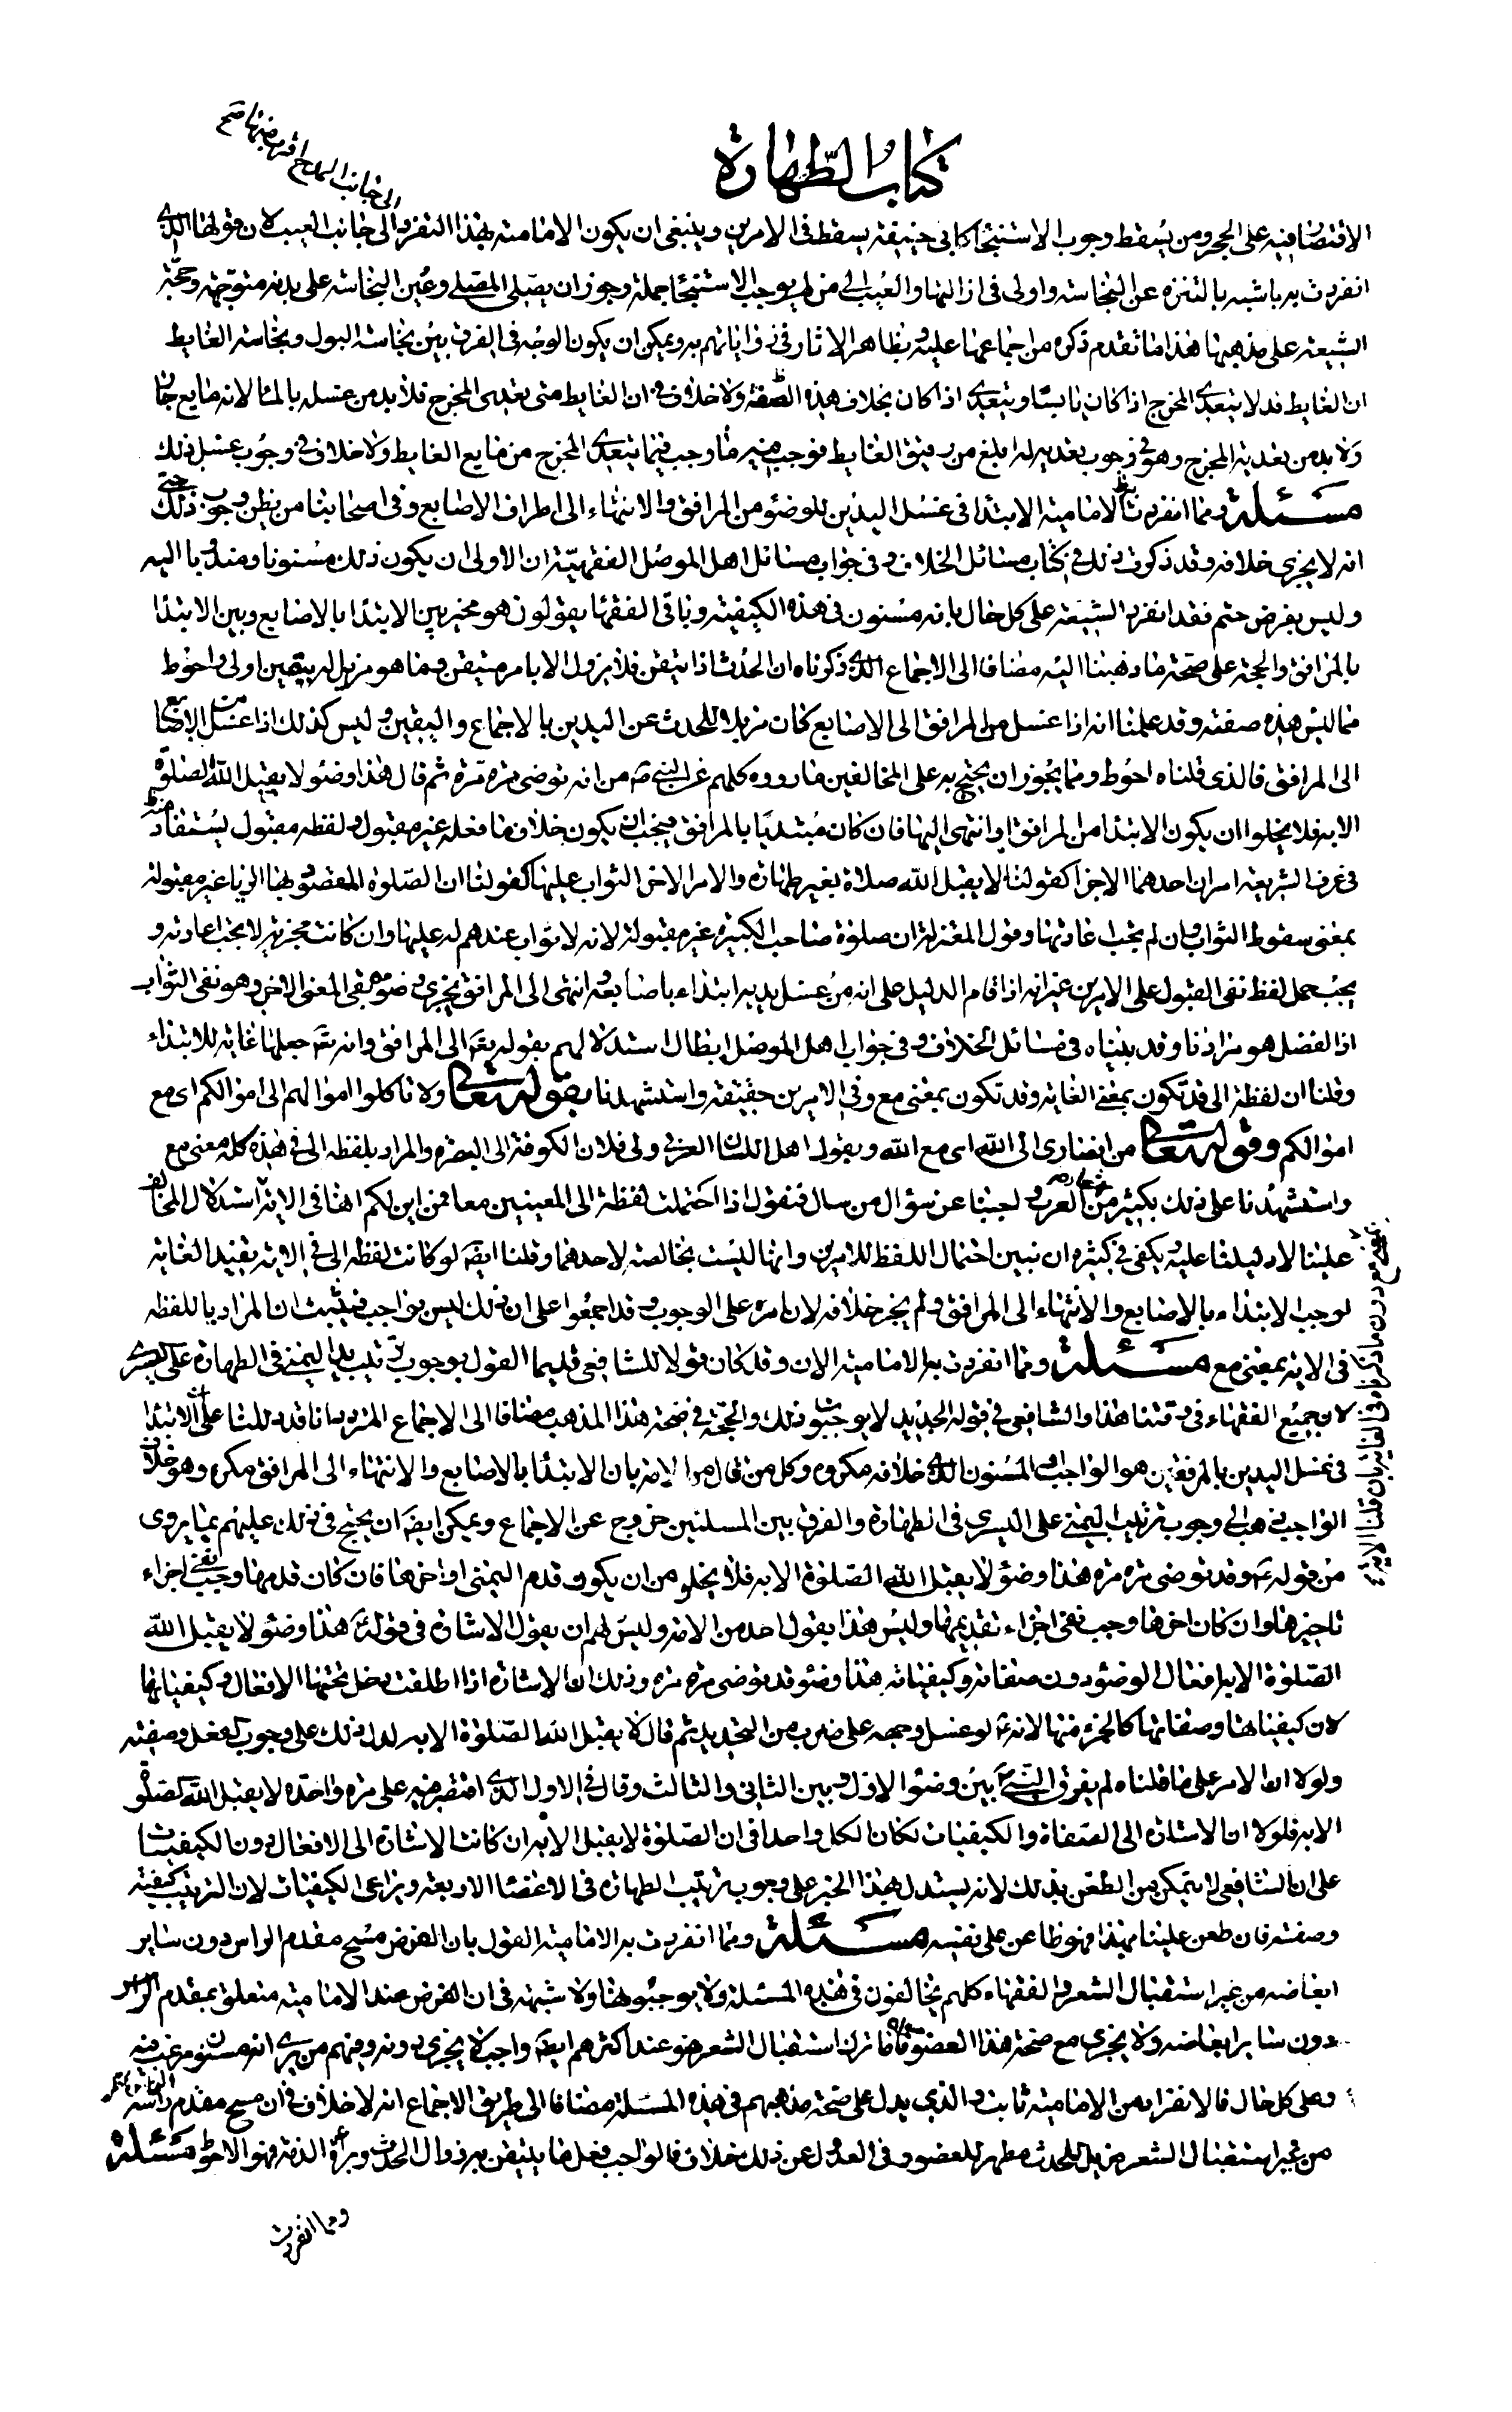 كتاب الطهارة
الى جانب المدح اقرب منها صح
الاقتصار فيه على الحجر ومن يسقط وجوب الاستنجاء كابي حنيفة يسقط في الامرين وينبغي ان يكون الامامية بهذا التفرد الى جانب العيب لان قولها الذي
انفردت به باشبه بالتنزه عن النجاسة واولى في ازالتها والعيب الى من لم يوجب الاستنجاء جملة وجوز ان يصلي المصلي وعين النجاسة على بدنه متوجهة وحجة
الشيعة على مذهبها هذا ما تقدم ذكره من اجماعها عليه وتظاهر الاثار في رواياتهم به ويمكن ان يكون الوجه في الفرق بين نجاسة البول ونجاسة الغايط
ان الغايط قد لا يتعدى المخرج اذا كان يابسا ويتعدى اذا كان بخلاف هذه الصفة ولا خلاف في ان الغايط متى تعدى المخرج فلا بد من غسله بالماء لانه مايع جار
ولا بد من تعديه المخرج وهو في وجوب تعديه له ابلغ من رقيق الغايط فوجب فيه ما وجب فيما يتعدى المخرج من مايع الغايط ولا خلاف في وجوب غسل ذلك
مسئلة ومما انفردت به الامامية الابتداء في غسل اليدين للوضوء من المرافق والانتهاء الى اطراف الاصابع وفي اصحابنا من يظن وجوب ذلك حتى
انه لا يجزي خلافه وقد ذكرت ذلك في كتاب مسائل الخلاف وفي جواب مسائل اهل الموصل الفقهية ان الاولى ان يكون ذلك مسنونا ومندوبا اليه
وليس بفرض حتم فقد انفرد الشيعة على كل حال بانه مسنون في هذه الكيفية وباقي الفقهاء يقولون هو مخير بين الابتداء بالاصابع وبين الابتداء
بالمرافق والحجة على صحة ما ذهبنا اليه مضافا الى الاجماع الذي ذكرناه ان الحدث اذا تيقن فلا يزول الا بامر متيقن وما هو مزيل له بيقين اولى واحوط
مما ليس هذه صفته وقد علمنا انه اذا غسل من المرافق الى الاصابع كان مزيلا للحدث عن اليدين بالاجماع واليقين وليس كذلك اذا غسل من الاصابع
الى المرافق فالذي قلناه احوط ومما يجوز ان يحتج به على المخالفين ما رووه كلهم عن النبي ص من انه توضى مرة مرة ثم قال هذا وضوء لا يقبل الله الصلوة
الا به فلا يخلوا ان يكون الابتداء من المرافق او انتهى اليها فان كان مبتديا بالمرافق فيجب ان يكون خلاف ما فعله غير مقبول ولفظه مقبول يستفاد منه
في عرف الشريعة امران احدهما الاجزاء كقولنا لا يقبل الله صلاة بغير طهارة والامر الاخر الثواب عليها كقولنا ان الصلوة المقصود بها الرياء غير مقبولة
بمعنى سقوط الثواب وان لم يجب اعادتها وقول المعتزلة ان صلوة صاحب الكبيرة غير مقبولة لانه لا ثواب عندهم له عليها وان كانت مجزية لا يجب اعادته و
يجب حمل لفظ نفى القبول على الامرين غير انه اذا قام الدليل على انه من غسل يديه ابتداء باصابعه وانتهى الى المرافق يجزي وضوءه بقي المعنى الاخر وهو نفى الثواب
اذا لفضل هو مرادنا وقد بيناه في مسائل الخلاف وفي جواب اهل الموصل ابطال استدلالهم بقوله تعه الى المرافق وانه تعه جعلها غاية للابتداء
وقلنا ان لفظة الى قد تكون بمعنى الغاية وقد تكون بمعنى مع وفي الامرين حقيقة واستشهدنا بقوله تعالى ولا تاكلوا اموالهم الى اموالكم اى مع
اموالكم وقوله تعالى من انصارى الى الله اى مع الله ويقول اهل اللسان العربي ولى فلان الكوفة الى البصرة والمراد بلفظه الى في هذه كله معنى مع
واستشهدنا على ذلك بكثير من اشعار العرب واجبنا عن سؤال من سال فنقول اذا احتملت لفظة الى المعنيين معا فمن اين لكم انها في الاية استدلال المخالف
علينا لا دليلنا عليه يكفى في كثيره ان نبين احتمال اللفظ للامرين وانها ليست بخالصة لاحدهما وقلنا ايضه لو كانت لفظه الى في الاية يفيد الغاية
لوجب الابتداء بالاصابع والانتهاء الى المرافق ولم يجز خلافه لان امره على الوجوب وقد اجمعوا على ان ذلك ليس بواجب فيثبت ان المراد باللفظه
في الاية بمعنى مع مسئلة ومما انفردت به الامامية الان وقد كان قولا للشافعي قديما القول بوجوب ترتيب يد اليمنى في الطهارة على اليسرى
لان جميع الفقهاء في وقتنا هذا والشافعي في قوله الجديد لا يوجبوا ذلك والحجة في صحة هذا المذهب مضافا الى الاجماع المردد انا قد دللنا على ان الابتداء
في غسل اليدين بالمرفقين هو الواجب او المسنون الذي خلافه مكروه وكل من قال من الامة بان الابتداء بالاصابع والانتهاء الى المرافق مكروه وهو خلاف
الواجب ذهب الى وجوب ترتيب اليمنى على اليسرى في الطهارة والفرق بين المسلتين خروج عن الاجماع ويمكن ايضه ان يحتج في ذلك عليهم بما يروى
من قوله ع وقد توضى مرة مرة هذا وضوء لا يقبل الله الصلوة الا به فلا يخلو من ان يكون قدم اليمنى او اخرها فان كان قدمها وجب نفى اجزاء
تاخيرها وان كان اخرها وجب نفى اجزاء تقديمها وليس هذا بقول احد من الامة وليس لهم ان يقول الاشارة في قوله هذا وضوء لا يقبل الله
الصلوة الا به افعال الوضوء دون صفاته وكيفياته هذا وضوء قد توضى مرة مرة وذلك ان الاشارة اذا اطلقت دخل تحتها الافعال وكيفياتها
لان كيفياتها وصفاتها كالجزء منها لانه لو غسل وجهه على ضرب من التحديد ثم قال لا يقبل الله الصلوة الا به لدل ذلك على وجوب الفعل وصفته
ولولا ان الامر على ما قلناه لم يفرق النبي بين وضوء الاول وبين الثاني والثالث وقال في الاول الذي اقتصر فيه على مرة واحدة لا يقبل الله الصلوة
الا به فلولا ان الاشارة الى الصفاة والكيفيات لكان لكل واحد في ان الصلوة لا يقبل الا به ان كانت الاشارة الى الافعال دون الكيفيات
على ان الشافعي لا يتمكن من الطعن بذلك لانه يستدل بهذا الخبر على وجوب ترتيب الطهارة في الاعضاء الاربعة ويراعى الكيفيات لان الترتيب كيفية
وصفة فان طعن علينا بهذا فهو طاعن على نفسه مسئلة ومما انفردت به الامامية القول بان الفرض مسح مقدم الراس دون ساير
ابعاضه من غير استقبال الشعر والفقهاء كلهم يخالفون في هذه المسئلة ولا يوجبوها ولا شبهة في ان الفرض عند الامامية متعلق بمقدم الراس
دون ساير ابعاضه ولا يجزى مع صحة هذا العضو سواه فاما ترك استقبال الشعر فهو عند اكثرهم ايضه واجب لا يجزى دونه وفيهم من يرى انه مسنون مرغب فيه
وعلى كل حال فالانفراد من الامامية ثابت والذي يدل على صحة مذهبهم في هذه المسئلة مضافا الى طريق الاجماع انه لا خلاف في ان مسح مقدم راسه
من غير استقبال الشعر مزيل للحدث مطهر للعضو وفي العدول عن ذلك خلاف فالواجب فعل ما يتيقن به زوال الحدث وبراءة الذمة فهو الاحوط مسئلة
ومما انفردت